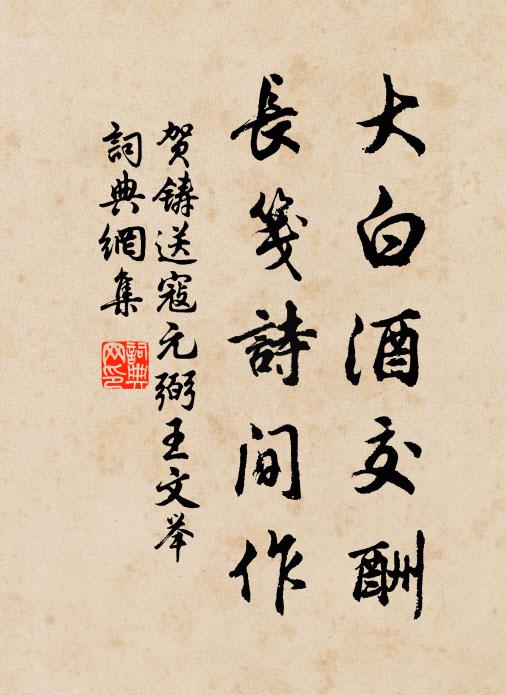 大白酒交酬
長箋詩間作
賀鑄送寇元弼王文举
詞典網集
詞典网印